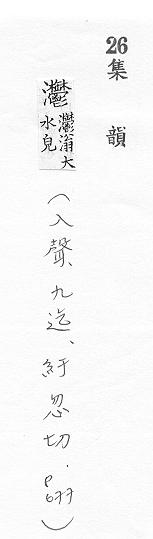 26
集韻
灪
灪滃大
水皃
(入聲、九迄、紆勿切.
P677)